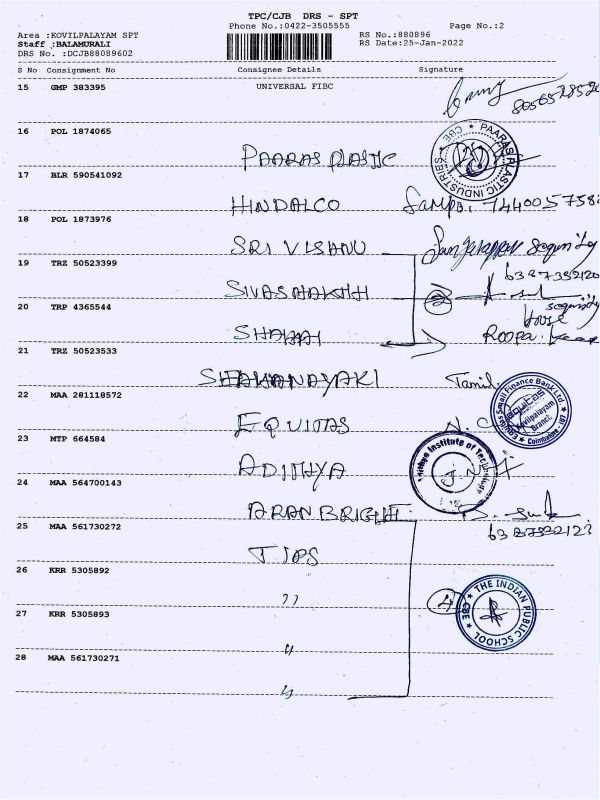 TPC/CJB DRS - SPT
Phone No.:0422-3505555
Page No.:2
Area :KOVILPALAYAM SPT
Staff :BALAMURALI
DRS No. :DCJB88089602
RS No.:880896
RS Date:25-Jan-2022
S No Consignment No Consignee Details Signature
15 GMP 383395 UNIVERSAL FIBC
16 POL 1874065
PAARAS PLASTIC
PAARAS PLASTIC INDUSTRIES ★ CBE ★
17 BLR 590541092
HINDALCO
18 POL 1873976
SRI VISHNU
19 TRZ 50523399
SIVASHAKTHI
2
20 TRP 4365544
Roopa
21 TRZ 50523533
Tamil
22 MAA 281118572
EQUITAS
Equitas Small Finance Bank Ltd.
Kovilpalayam Branch
Coimbatore
23 MTP 664584
ADITHYA
Institute of Technology
24 MAA 564700143
ARAN BRIGHT
25 MAA 561730272
TIPS
26 KRR 5305892
"
4
THE INDIAN PUBLIC SCHOOL ★ CBE ★
27 KRR 5305893
"
28 MAA 561730271
"